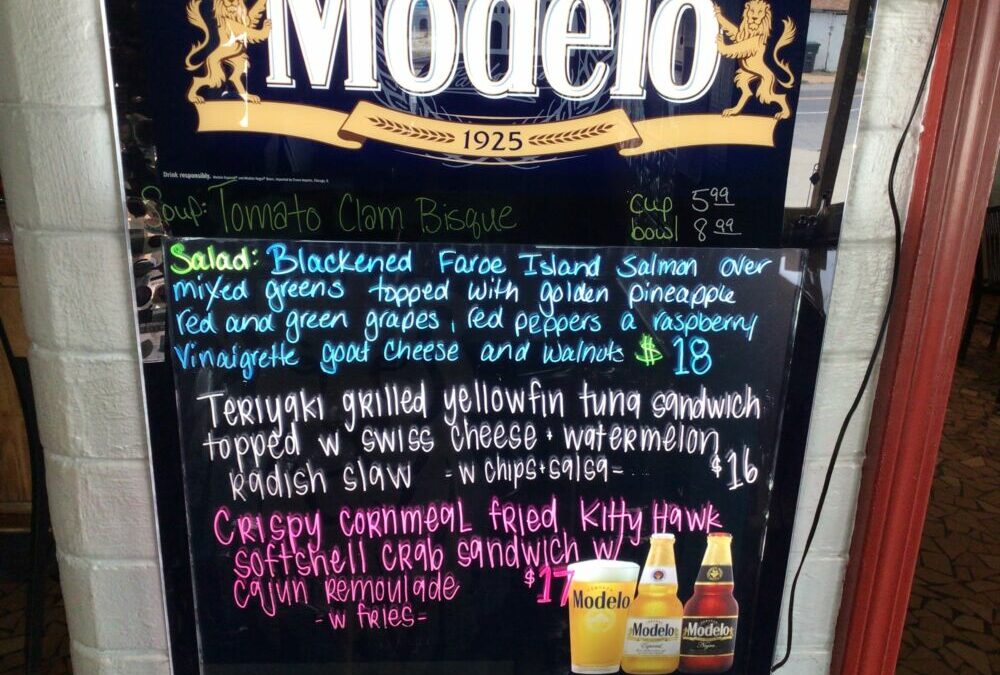 Modelo
1925
Drink responsibly.
Soup: Tomato Clam Bisque cup 5.99
bowl 8.99
Salad: Blackened Faroe Island Salmon over
mixed greens topped with golden pineapple
red and green grapes, red peppers a raspberry
Vinaigrette goat cheese and walnuts $18
Teriyaki grilled yellowfin tuna sandwich
topped w swiss cheese + watermelon
radish slaw - w chips + salsa - $16
Crispy cornmeal fried Kitty Hawk
softshell crab sandwich w/
cajun remoulade $17
- w fries -
Modelo
Modelo
Especial
Modelo
Negra